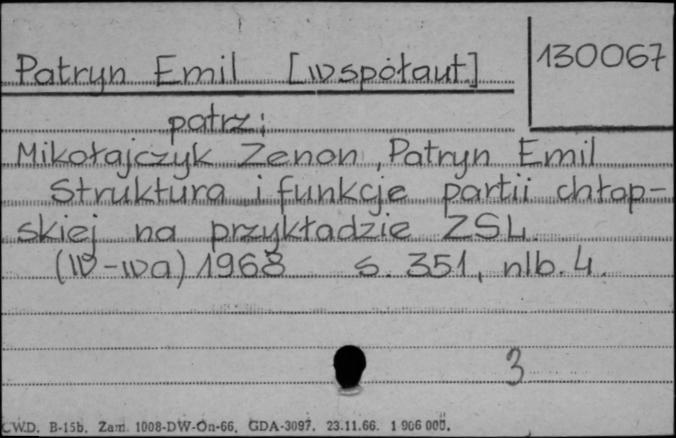 Patryn Emil [współaut.]
130067
patrz:
Mikołajczyk Zenon, Patryn Emil
Struktura i funkcje partii chłop-
skiej na przykładzie ZSL.
(W-wa) 1968 s. 351, nlb. 4.
3
CWD. B-15b. Zam. 1008-DW-On-66. GDA-3097. 23.11.66. 1 906 000.